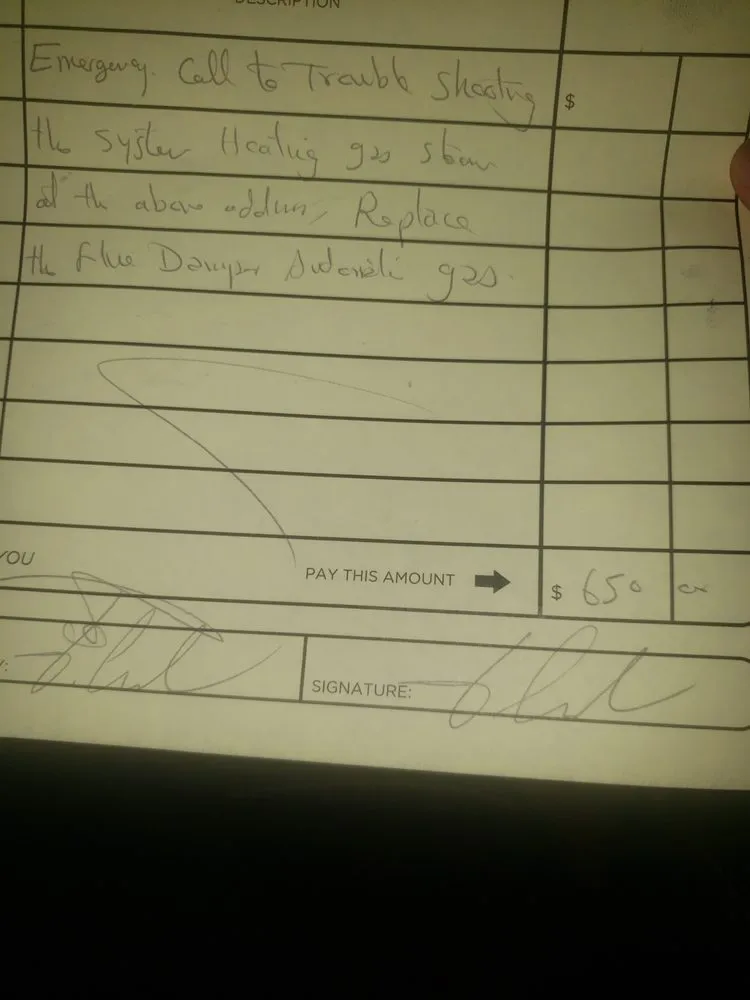 DESCRIPTION
Emergency. Call to Trouble Shooting $
the System Heating gas steam
at the above address, Replace
the flue Damper Automatic gas.
YOU
PAY THIS AMOUNT $ 650
SIGNATURE: